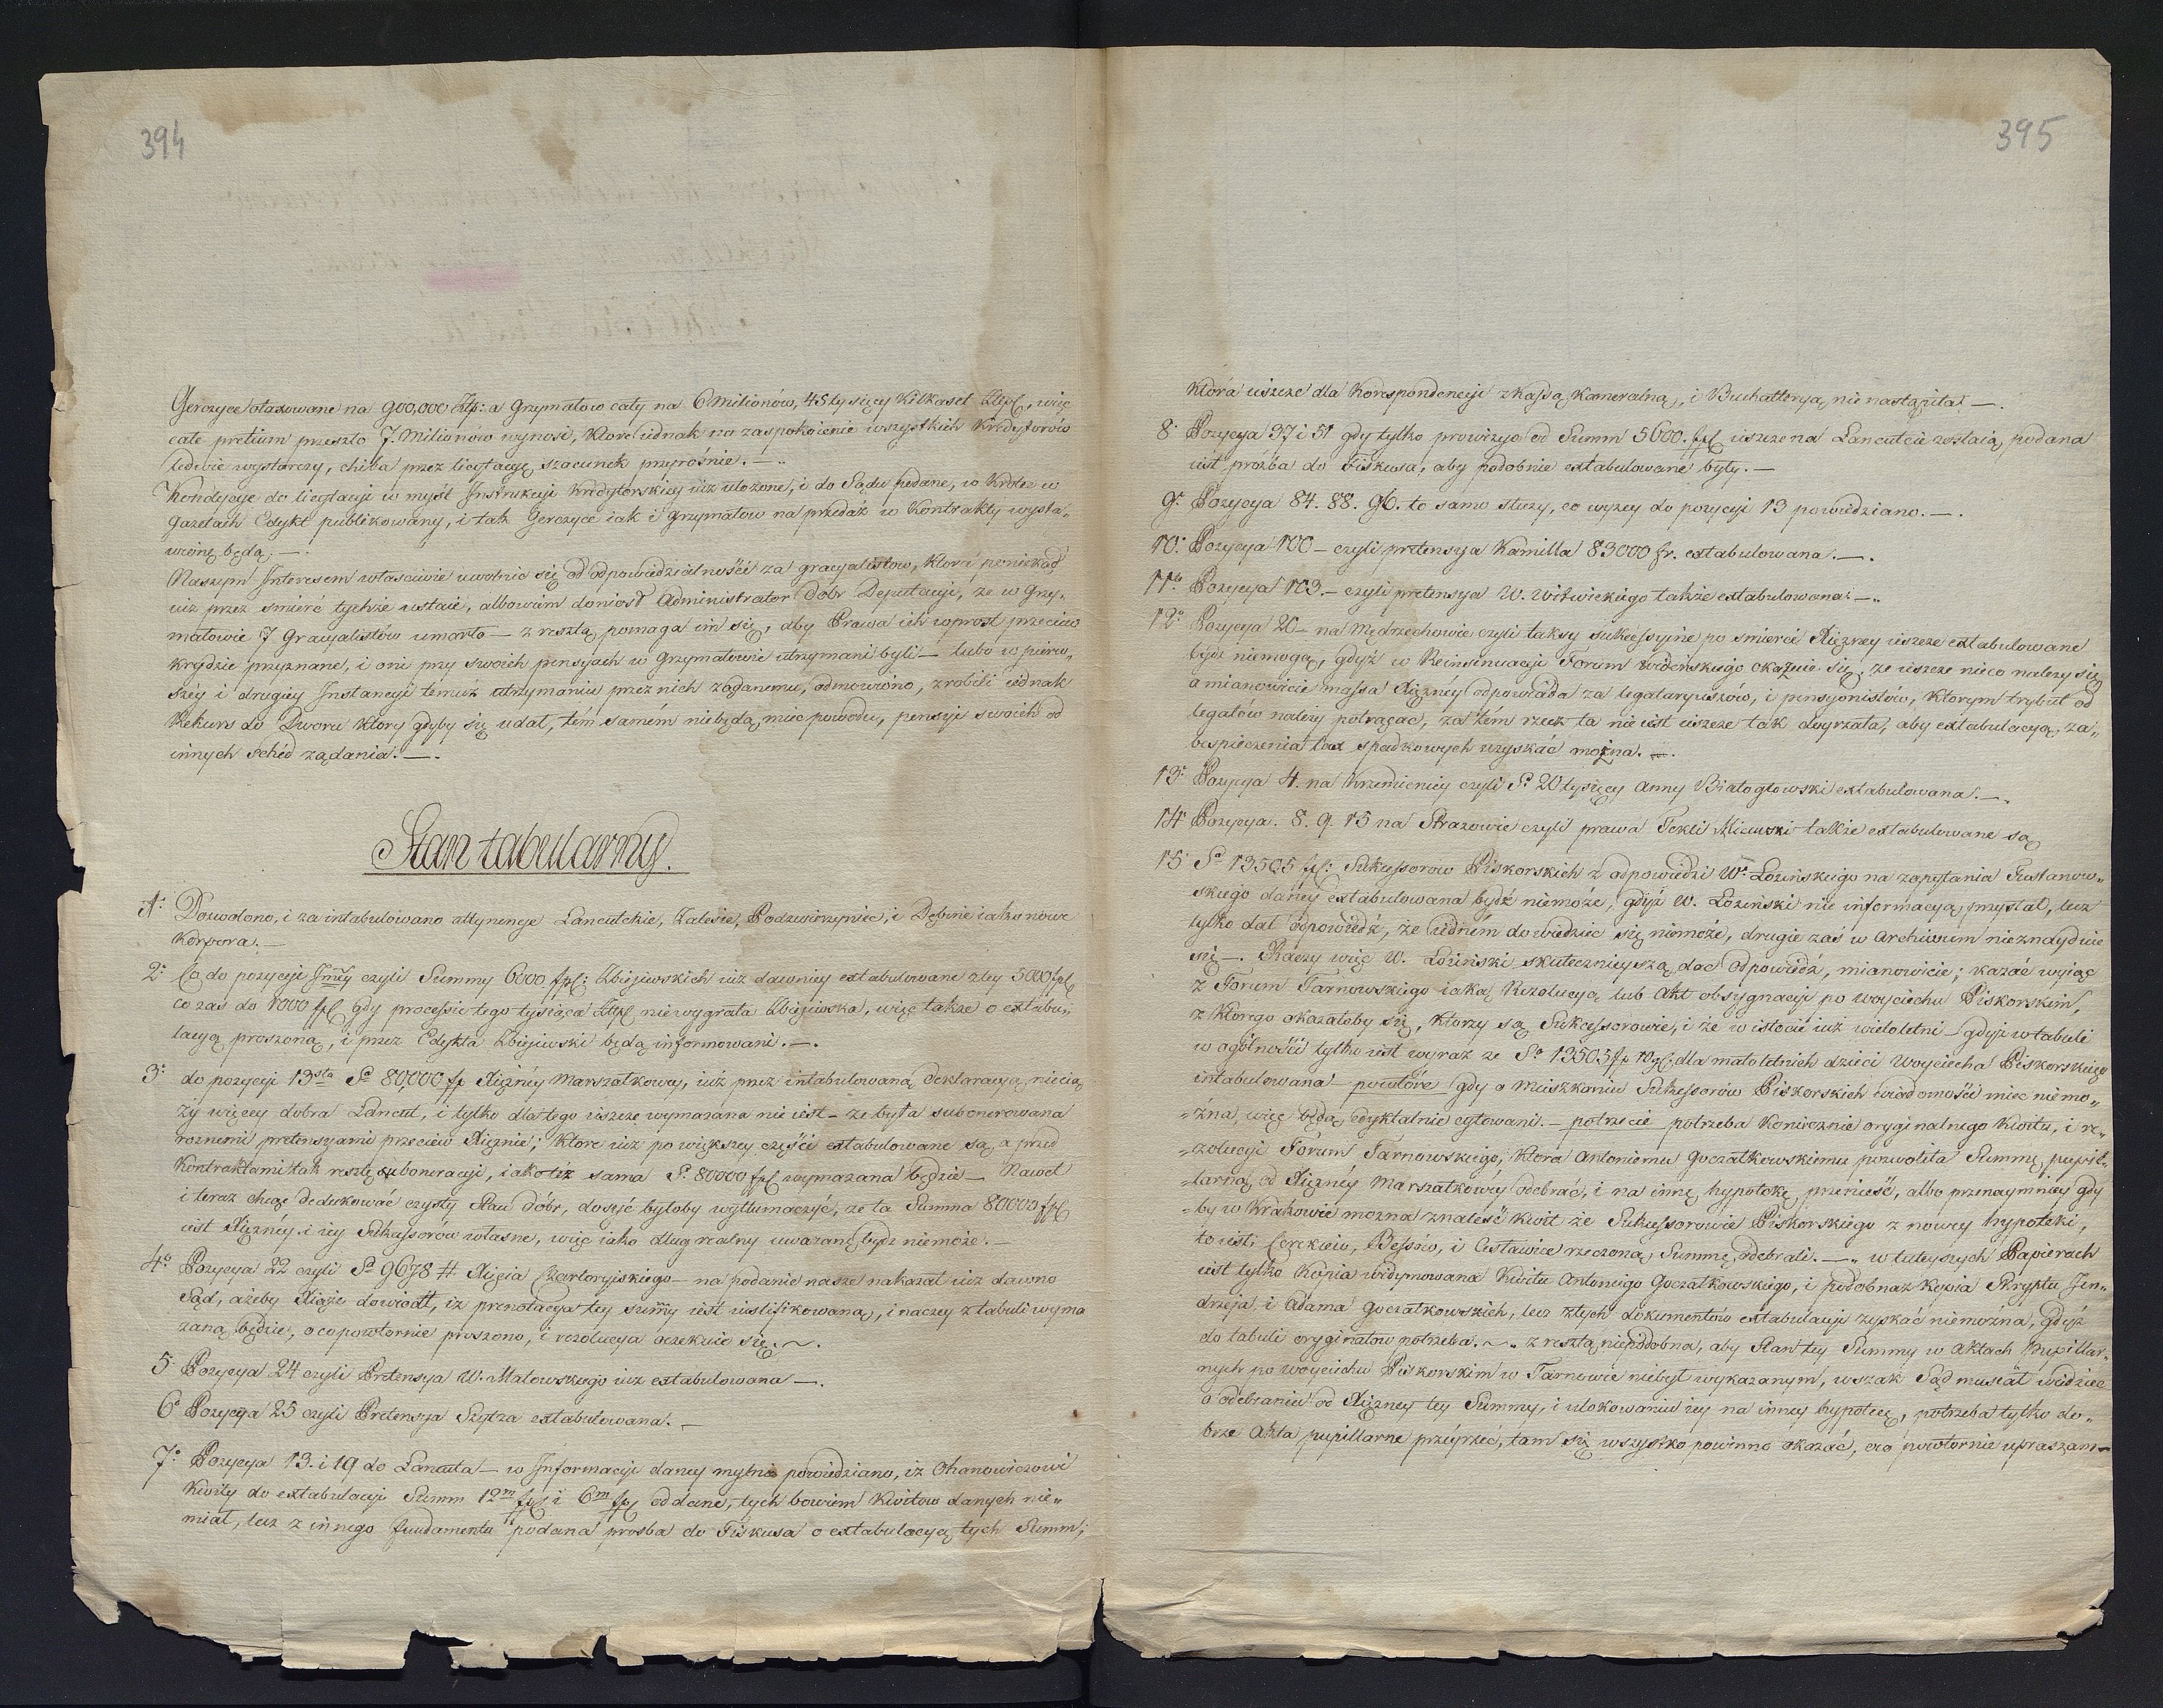 394
Gerczyce otaxowane na 900,000 Złp: a Grzymałow cały na 6 Milionów, 45 tysięcy kilkaset Złpl, więc
całe pretium przeszło 7. Milionów wynosi, które iednak na zaspokoienie wszystkich Kredytorów
ledwie wystarczy, chiba przez licytacyę szacunek przyrośnie. —
Kondycye do licytacyi w myśl Instrukcyi Kredytorskiey iuż ułożone, i do Sądu podane, w krotce w
gazetach Edykt publikowany, i tak Gerczyce iak i Grzymałow na przedaż w Kontrakty wysta„
wione będą. —.
Naszym Interesem właściwie uwolnić się od odpowiedzialności za gracyalistow, która poniekąd
iuż przez smierć tychże ustaie, albowiem doniosł Administrator Dóbr Deputacyi, że w Grzy„
małowie 7 Gracyalistów umarło — z resztą pomaga im się, aby Prawa ich wprost przeciw
krydzie przyznane, i oni przy swoich pensyach w Grzymałowie utrzymani byli — lubo w pierw„
széy i drugiey Instancyi temuż utrzymaniu przez nich żądanemu, odmowiono, zrobili iednak
Rekurs do Dworu który gdyby się udał, tém samém niebędą mieć powodu, pensyi swoich od
innych Schéd żądania. —.
Stan tabularny.
1° Dozwolono, i za intabulowano attynencye Łancutckie, Zalesie, Podzwierzyniec, i Dębinę iako nowe
korpora. —
2° Co do pozycyi czyli Summy 6000 fpl: Zbijewskich iuż dawniey extabulowane z tey 5000 fpl
co zaś do 1000 fpl gdy processie tego tysiąca Złpl niewygrała Zbijewska, więc także o extabu„
lacyą proszono, i przez Edykta Zbijewski będą informowani. —.
3° do pozycyi 13sta Sa 80,000 fp Xiężnéy Marszałkowy, iuż przez intabulowaną deklaracyą nie cią„
ży więcey dobra Łancut, i tylko dlatego ieszcze wymazana nie iest — że była subonerowana
roznemi pretensyami przeciw Xiężnie; które iuż po większey części extabulowane są, a przed
Kontraktami tak resztę suboneracyi, iako téż sama S. 80000 fpl wymazana będzie — Nawet
i teraz chcąc dedukować czysty Stan dóbr, dosyć byłoby wytłumaczyć, że ta Summa 80000 fpl
iest Xiężnéy i iey Sukcessorów własne, więc iako dług realny uważaną bydz niemoże. —
4° Pozycya 22 czyli Sa 9678 # Xięcia Czartoryiskiego — na podanie nasze nakazał iuż dawno
Sąd, ażeby Xiąże dowiodł, iż prenotacya tey summy iest iustifikowaną, inaczey z tabuli wyma
zaną będzie, o co powtornie proszono, i rezolucya oczekuie się. ~.
5° Pozycya 24 czyli Pretensya W. Matowskiego iuż extabulowana —.
6° Pozycya 25 czyli Pretensya Szytza extabulowana. —
7° Pozycya 13. i 19 do Łancuta — w Informacyi daney mylnie powiedziano, iż Ohanowiczowi
kwity do extabulacyi Summ 12m fpl i 6m fpl oddane, tych bowiem kwitow danych nie„
miał, lecz z innego fundamentu podana prosba do Fiskusa o extabulacyą tych Summ;
395
która ieszcze dla Korespondencyi z kassą kameralną, i Buchalteryą, nie nastąpiła? —.
8° Pozycya 37 i 51 gdy tylko prowizye od Summ 5600. fpl ieszcze na Łancutcie zostaią, podana
iest prożba do Fiskusa, aby podobnie extabulowane były. —
9° Pozycya 84. 88. 96. to samo służy, co wyżey do pozycyi 13 powiedziano. —.
10° Pozycya 100 — czyli pretensya Kamilla 83000 fr. extabulowana. —.
11to Pozycya 103. — czyli pretensya W. Witwickiego także extabulowana: —„
12° Pozycya 20 — na Mędrzechowie czyli taksy sukcessyine po smierci Xiężney ieszcze extabulowane
bydz niemogą, gdyż w Reinsinuacyi Forum Wideńskiego okazuie się, że ieszcze nieco należy się
a mianowicie massa Xiężnéy odpowiada za legataryuszów, i pensyonistów, którym trybut od
legatów należy potrącać, za tém rzecz ta nie iest ieszcze tak doyrzała, aby extabulacyą, za„
bespieczenia tax spadkowych uzyskać można. —.
13° Pozycya 4. na Krzemienicy czyli Sa 20 tysięcy Anny Białogłowski extabulowana. —.
14° Pozycya. 8. 9. 15 na Strazowie czyli prawa Tekli Micuński także extabulowane są
15° Sa 13505 fpl: Sukcessorow Piskorskich z odpowiedzi W. Łozińskiego na zapytania Sustanow„
skiego danéy extabulowana bydź niemoże, gdyż W. Łoziński nie informacyą przysłał, lecz
tylko dał odpowiedź, że iedném dowiedzieć się niemoże, drugie zaś w Archiwum nieznayduie
się —. Raczy więc W. Łoziński skutecznieyszą dać Odpowiedź, mianowicie; kazać wyiąć
z Forum Tarnowskiego iaką Rezolucyą lub Akt obsygnacyi po Woyciechu Piskorskim,
z którego okazałoby się, którzy są Sukcessorowie, i że w istocie iuż wieloletni — gdyż w tabuli
w ogólności tylko iest wyraz ze Sa 13505 fp 10 gl: dla małoletnich dzieci Woyciecha Piskorskiego
intabulowana — powtóre gdy o Mieszkaniu Sukcessorów Piskorskich wiadomości mieć niemo„
„żna, więc będą edyktalnie cytowani. — potrzecie potrzeba koniecznie oryginalnego Kwitu, i re„
„zolucyi Forum Tarnowskiego, która Antoniemu Goczałkowskiemu pozwoliła Summę pupil„
„larną od Xiężnéy Marszałkowéy odebrać, i na inną hypotekę przenieść, albo przenaymniey gdy
„by w Krakowie mozna znaleść kwit że Sukcessorowie Piskorskiego z nowey hypoteki,
to iest: Cerekwi, Bessów, i Cestawice rzeczoną Summę odebrali. —„ w tuteyszych Papierach
iest tylko Kopia widymowana Kwitu Antoniego Goczałkowskiego, i podobnaż Kopia Skryptu Jęn„
drzeja, i Adama Goczałkowskich, lecz z tych dokumentów extabulacyi zyskać niemożna, gdyż
do tabuli oryginałow potrzeba. ~„ z resztą niepodobna, aby Stan tey Summy w Aktach Pupillar„
nych po Woyciechu Piskorskim w Tarnowie niebył wykazanym, wszak Sąd musiał wiedzieć
o odebraniu od Xiężney tey Summy, i ulokowaniu iey na inney hypotece, potrzeba tylko do„
brze Akta pupillarne przeyrzeć, tam się wszystko powinno okazać, oco powtornie upraszam —